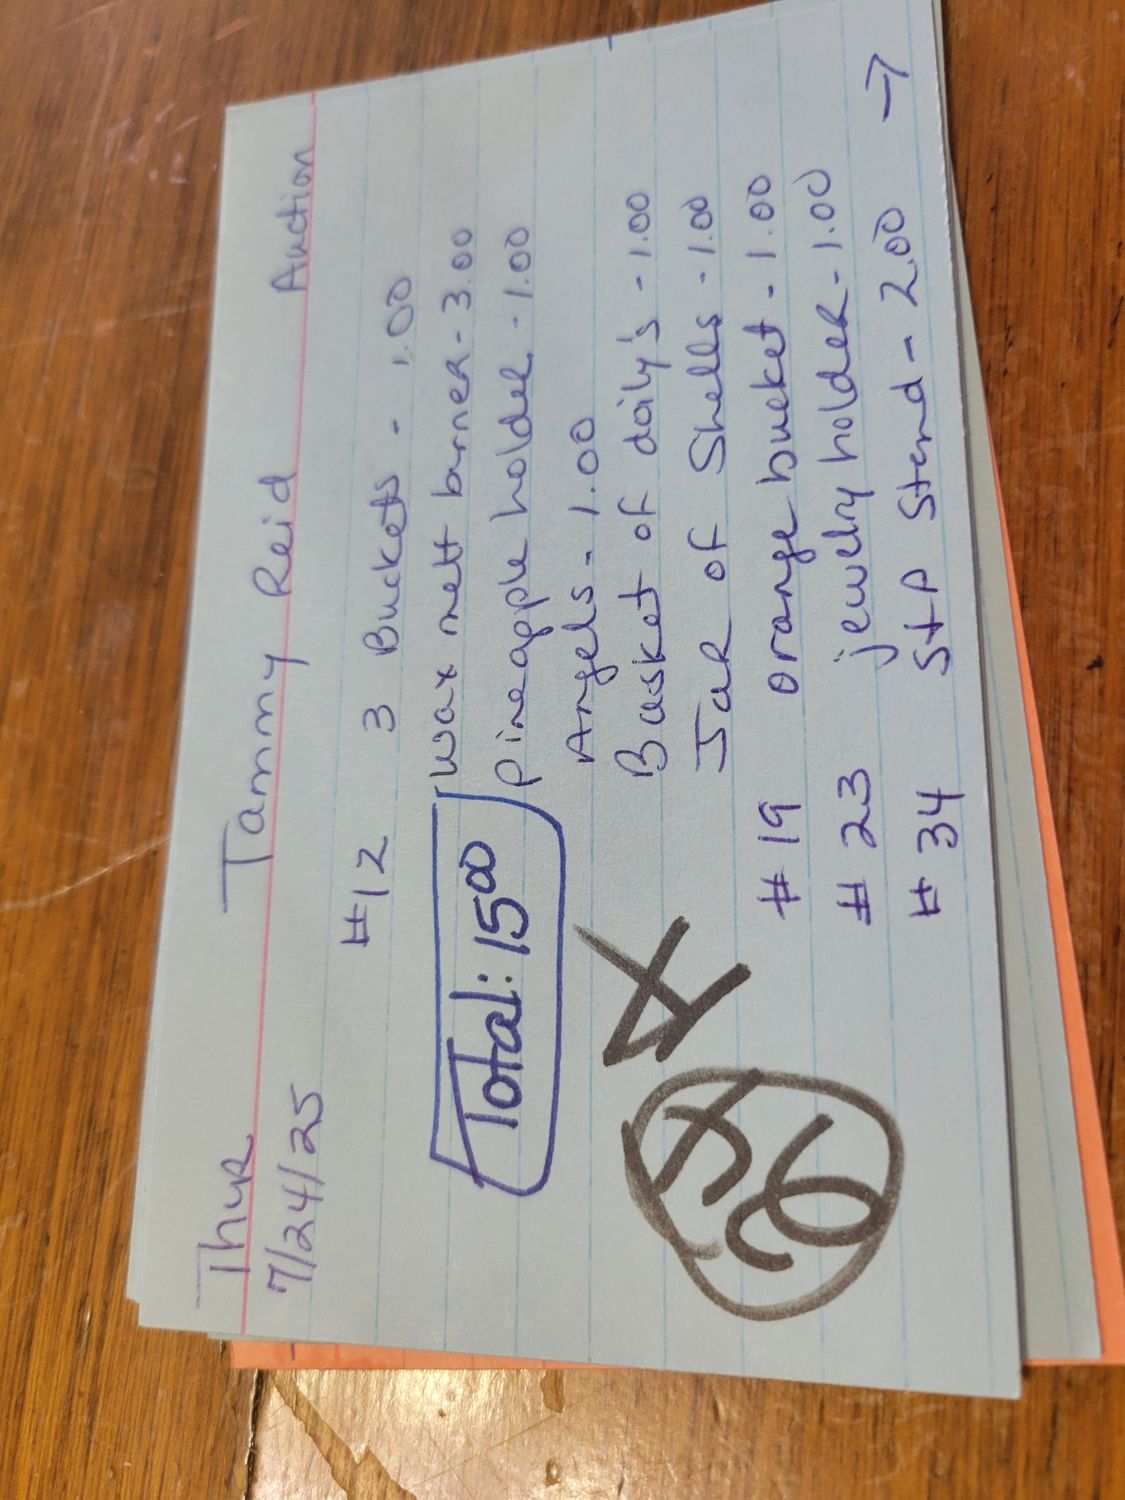 Thur Tammy Reid Auction
7/24/25
#12 3 Buckets - 1.00
wax melt burner - 3.00
pineapple holder - 1.00
Total: 15 00
Angels - 1.00
Basket of daily's - 1.00
Jar of Shells - 1.00
#19 orange bucket - 1.00
#23 jewelry holder - 1.00
#34 Stp Stand - 2.00 →